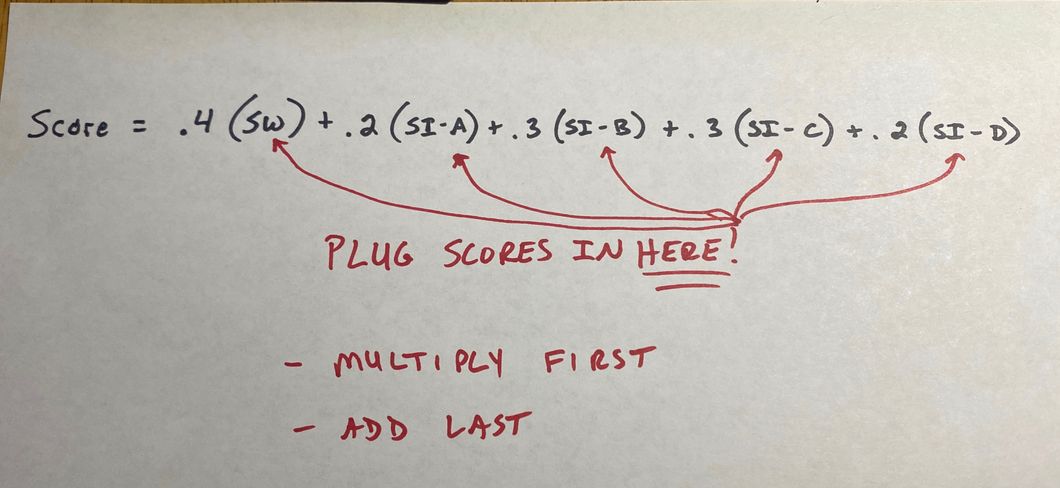 Score = .4 (SW) + .2 (SI-A) + .3 (SI-B) + .3 (SI-C) + .2 (SI-D)
PLUG SCORES IN HERE!
- MULTIPLY FIRST
- ADD LAST